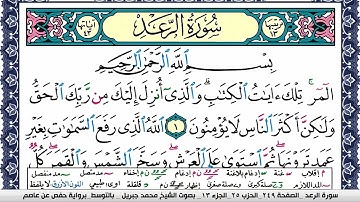 سُورَةُ الرَّعْدِ
بِسْمِ اللَّهِ الرَّحْمَٰنِ الرَّحِيمِ
الٓمٓرۚ تِلْكَ ءَايَٰتُ الْكِتَٰبِۗ وَالَّذِىٓ أُنزِلَ إِلَيْكَ مِن رَّبِّكَ الْحَقُّ
وَلَٰكِنَّ أَكْثَرَ النَّاسِ لَا يُؤْمِنُونَ ١ اللَّهُ الَّذِى رَفَعَ السَّمَٰوَٰتِ بِغَيْرِ
عَمَدٍ تَرَوْنَهَاۖ ثُمَّ اسْتَوَىٰ عَلَى الْعَرْشِۖ وَسَخَّرَ الشَّمْسَ وَالْقَمَرَۖ كُلٌّ
سورة الرعد الصفحة ٢٤٩ الحزب ٢٥ الجزء ١٣ بصوت الشيخ محمد جبريل بالتوسط برواية حفص عن عاصم